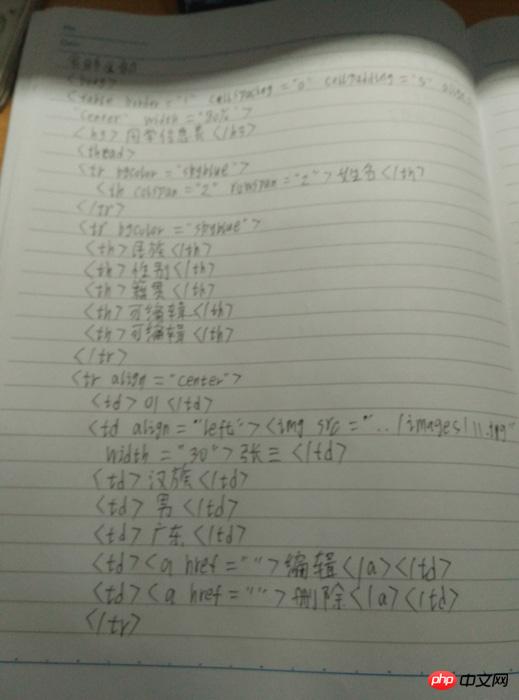 <body>
<table border="1" cellspacing="0" cellpadding="5" align=
"center" width="80%">
<h3>同学信息表</h3>
<thead>
<tr bgcolor="skyblue">
<th colspan="2" rowspan="2">姓名</th>
</tr>
<tr bgcolor="skyblue">
<th>民族</th>
<th>性别</th>
<th>籍贯</th>
<th>可编辑</th>
<th>可编辑</th>
</tr>
<tr align="center">
<td>01</td>
<td align="left"><img src="../images/11.jpg"
width="30">张三</td>
<td>汉族</td>
<td>男</td>
<td>广东</td>
<td><a href="">编辑</a></td>
<td><a href="">删除</a></td>
</tr>
php中文网